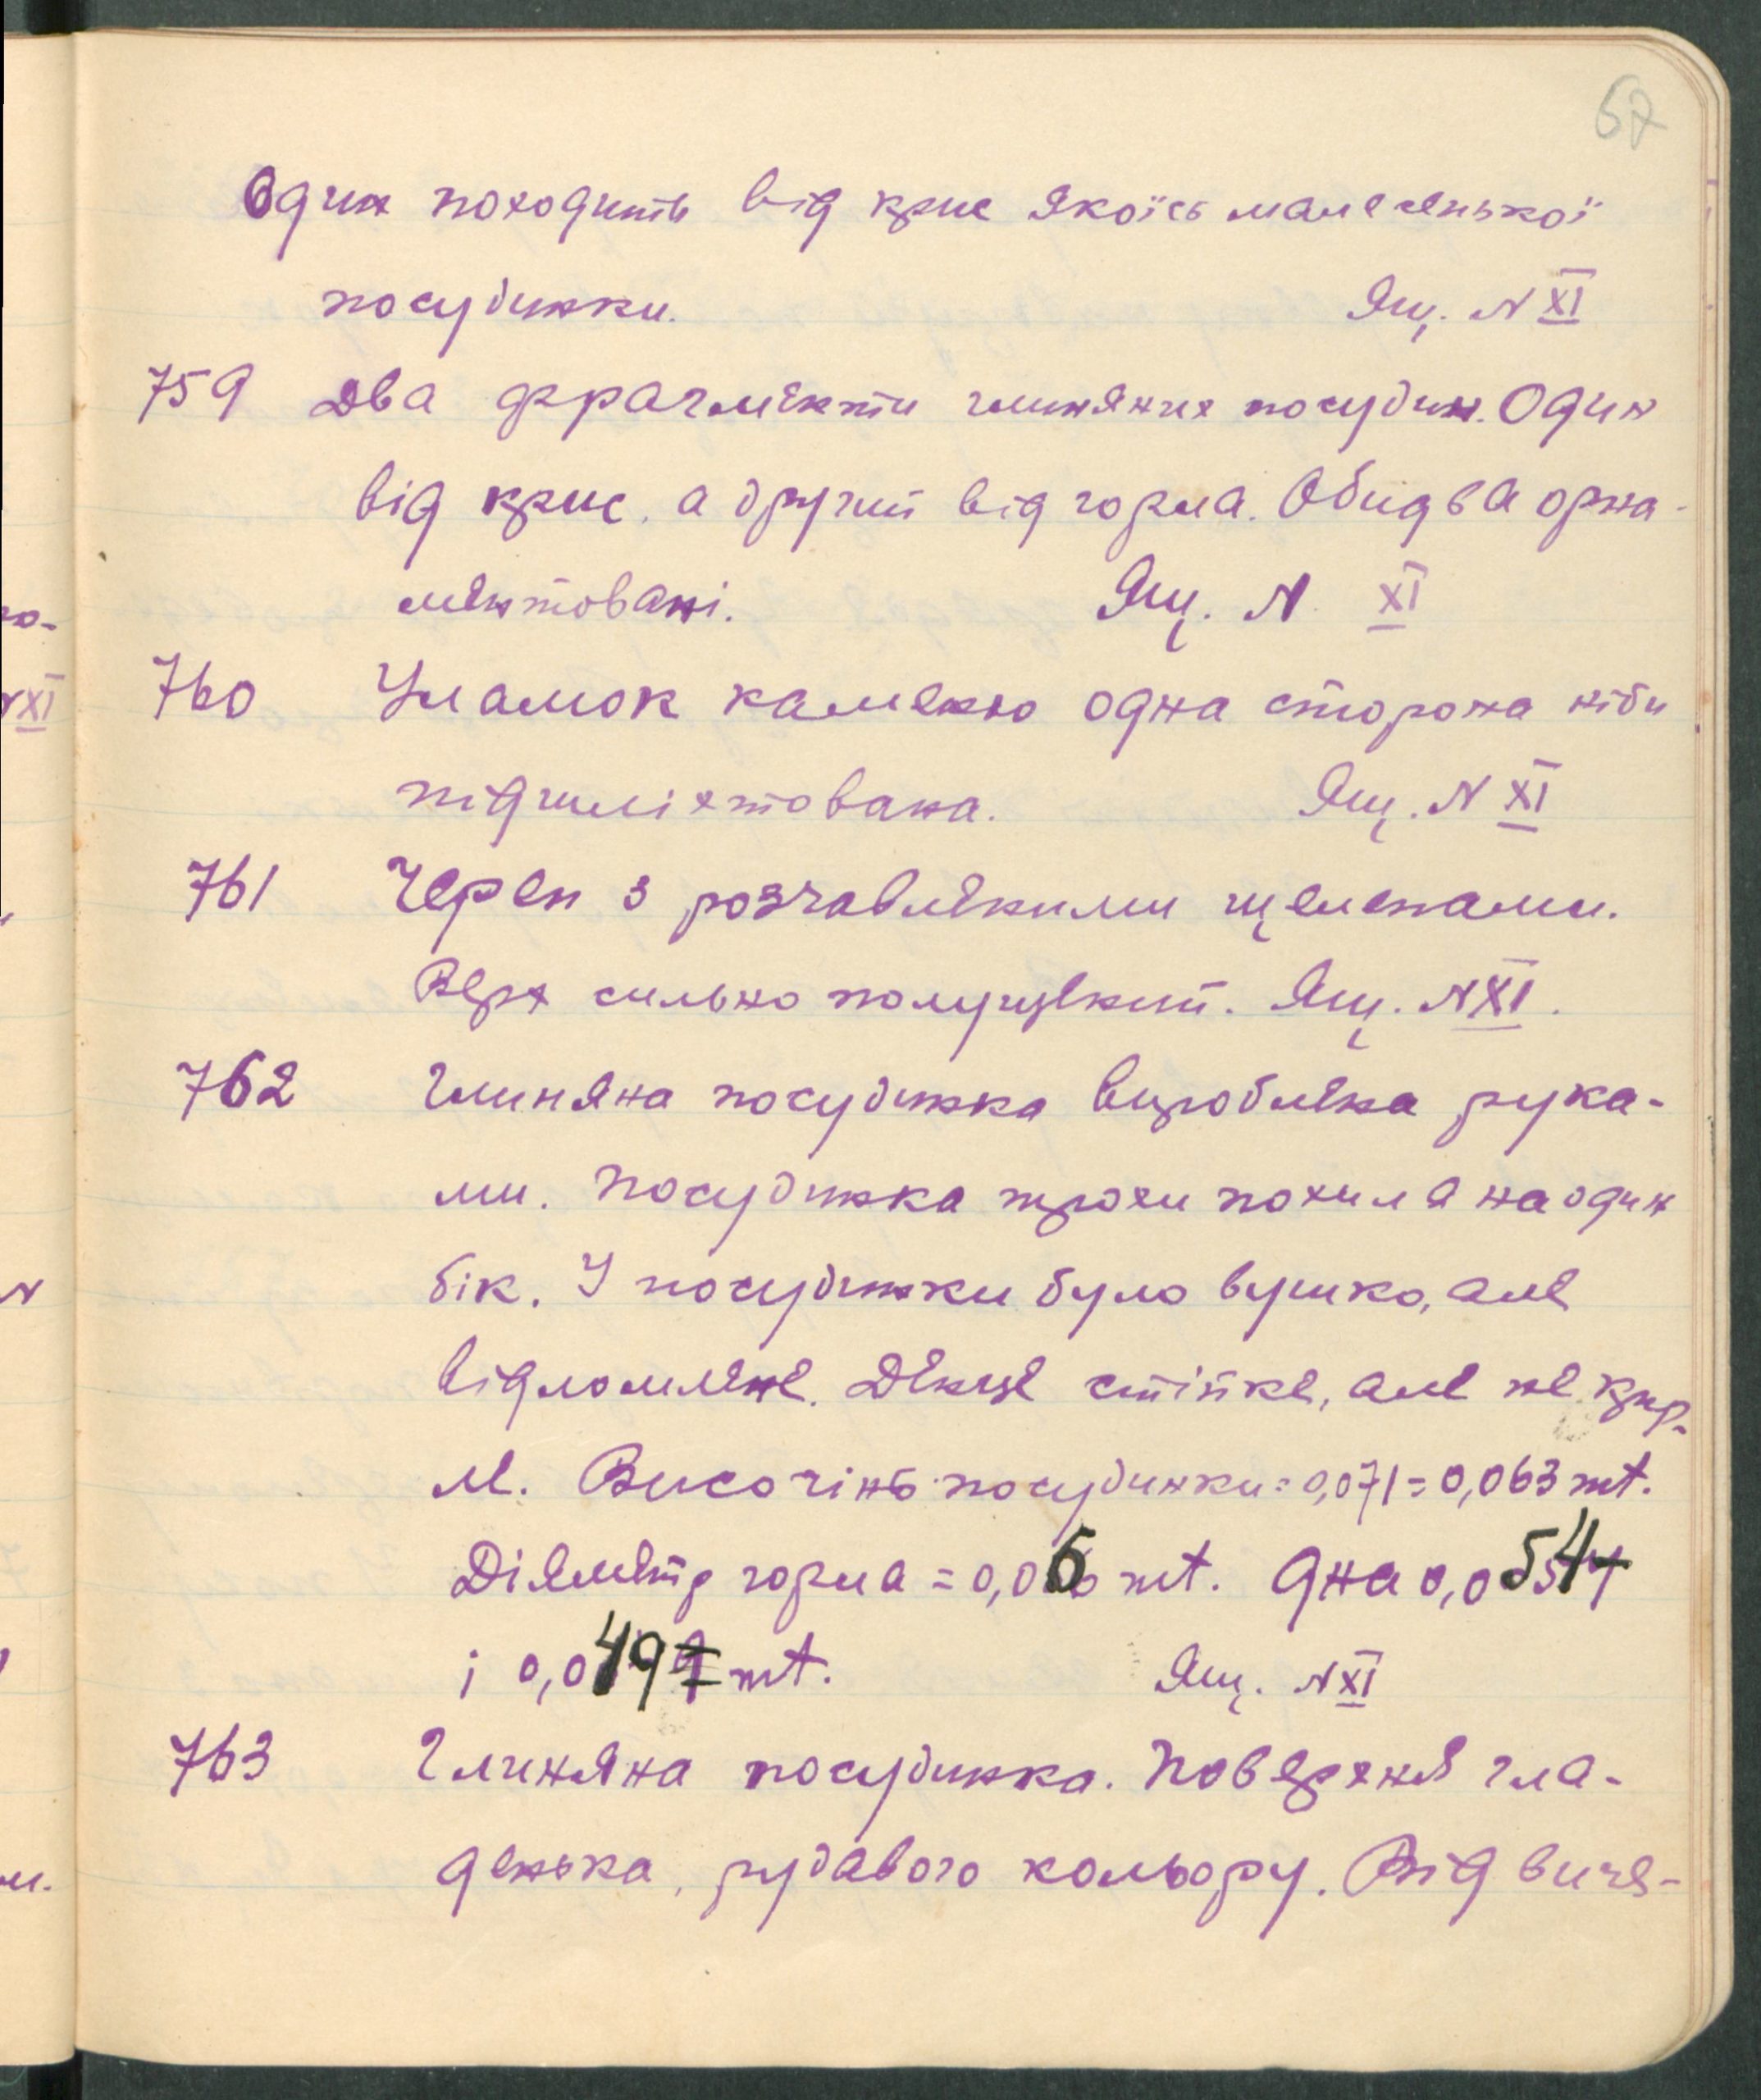 67
Один походить від крис якоїсь малесенької
посудинки. Ящ. N XI
759 Два фрагменти глиняних посудин. Один
від крис, а другий від горла. Обидва орна-
ментовані. Ящ. N XI
760 Уламок каменю одна сторона ніби
підшліхтована. Ящ. N XI
761 Череп з розчавленими щелепами.
Верх сильно полущений. Ящ. N XI.
762 Глиняна посудинка вироблена рука-
ми. Посудинка трохи похила на один
бік. У посудинки було вушко, але
відломлене. Денце стійке, але не кру-
ле. Височінь посудинки = 0,071 = 0,063 mt.
Діяметр горла = 0,06 mt. дна 0,054
і 0,049 mt. Ящ. N XI
763 Глиняна посудинка. Поверхня гла-
денька, рудавого кольору. Від виче-